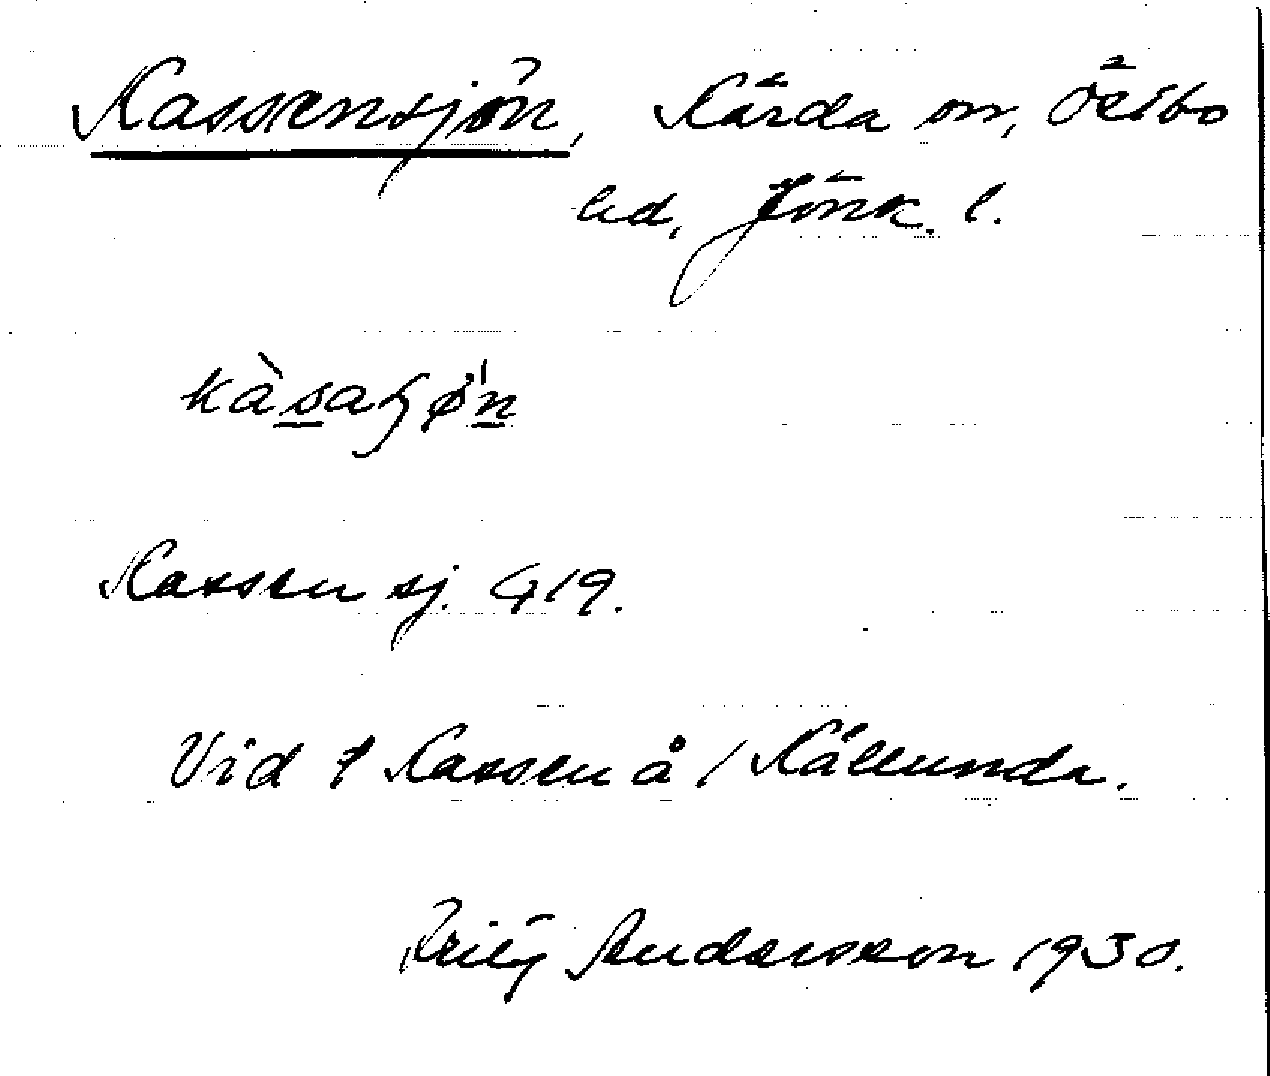 Kassensjön, Kärda sn, Östbo
hd, Jönk. l.
Kassen sj. 419.
Vid Kassen å / Källunda.
Andersson 1930.